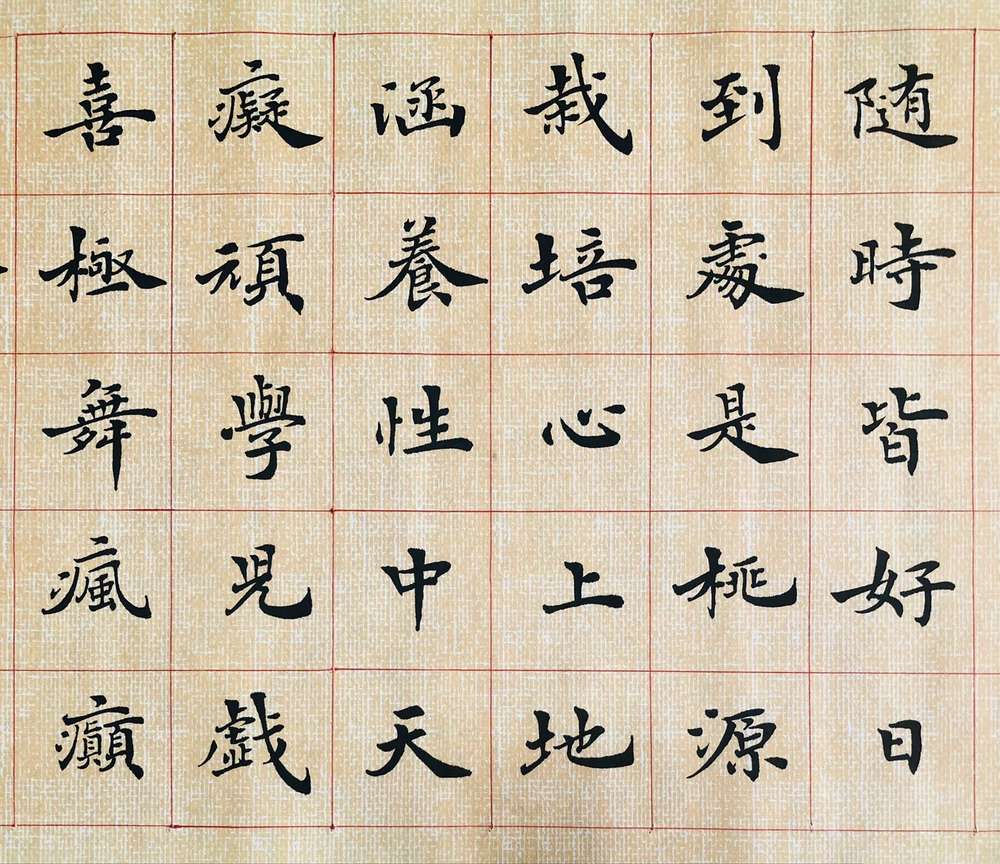 隨時皆好日
到處是桃源
栽培心上地
涵養性中天
癡頑學兒戲
喜極舞瘋癲